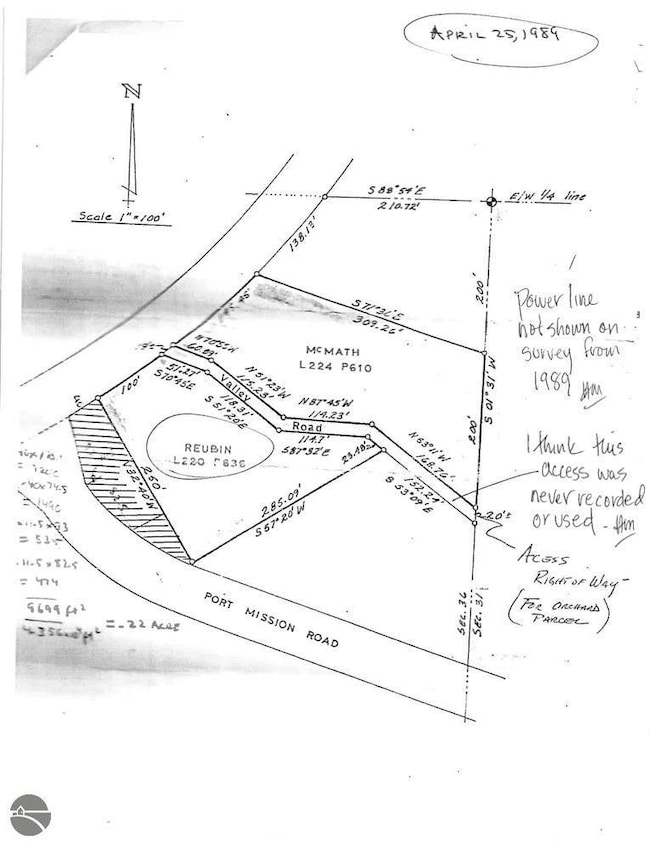 APRIL 25, 1989
N
Scale 1"=100'
S 88°54'E
210.72'
E/W 1/4 line
138.12'
200'
S 71°31'E
309.26'
McMATH
L224 P610
S 01°31' W
200'
60.09'
N 51°23'W
115.23'
N 87°45'W
114.23'
N 53°11'W
Valley
Road
51.27'
S 70°45'E
118.31'
S 51°20'E
114.7'
S 87°32'E
23.49'
152.24'
S 53°09'E
100'
REUBIN
L220 P636
250'
N 32°40'W
285.09'
S 57°20'W
20'±
SEC. 36
SEC. 31
PORT MISSION ROAD
Power line
not shown on
survey from
1989 Hm
I think this
access was
never recorded
or used. - Hm
ACESS
RIGHT OF WAY -
(FOR ORCHARD
PARCEL)
9699 ft²
= .22 ACRE